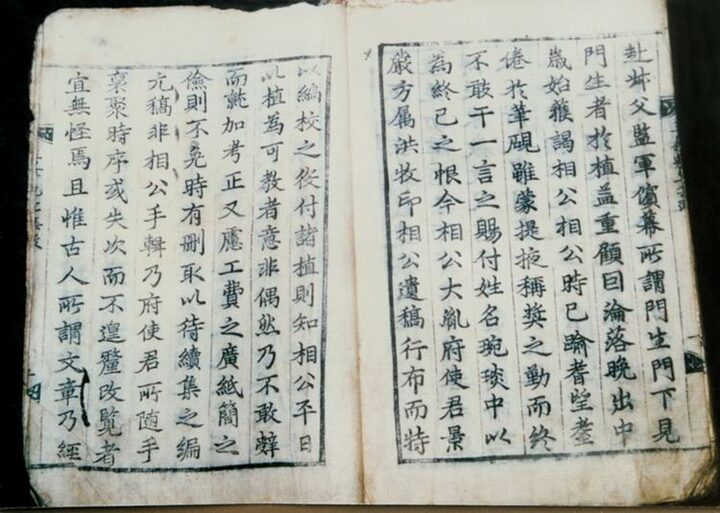 赴炸父監軍儐幕所謂門生門下見
門生者於植益重顧曰淪落晚出中
歲始獲謁相公相公時已踰耆望耋
倦於筆硯雖蒙提掖稱奬之勤而終
不敢干一言之賜付姓名琬琰中以
為終已之恨今相公大胤府使君景
嚴方属洪牧印相公遺稿行布而特
以編校之役付諸植則知相公平日
以植為可教者意非偶然乃不敢辭
而就加考正又慮工費之廣紙簡之
儉則不免時有刪取以待續集之編
亢稿非相公手輯乃府使君所随手
裒聚時序或失次而不遑釐改覧者
宜無怪焉且惟古人所謂文章乃經